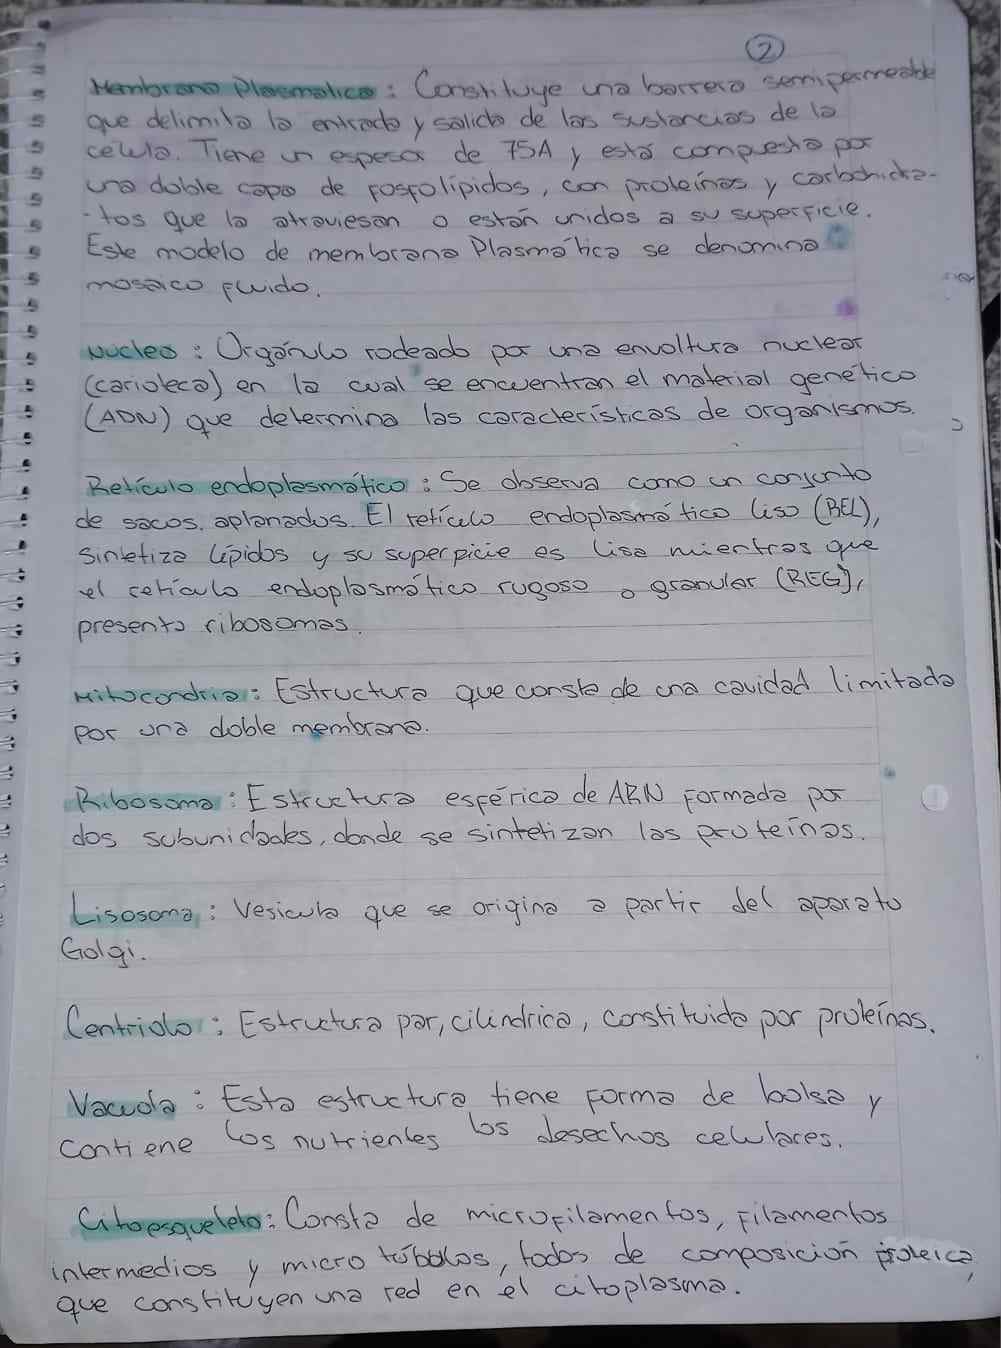 2
Membrana Plasmatica: Constituye una barrera semipermeable
que delimita la entrada y salida de las sustancias de la
celula. Tiene un espesor de 75A y está compuesta por
una doble capa de fosfolípidos, con proteínas y carbohidra-
-tos que la atraviesan o están unidos a su superficie.
Este modelo de membrana Plasmática se denomina
mosaico fluido.
Nucleo: Orgánulo rodeado por una envoltura nuclear
(carioteca) en la cual se encuentran el material genético
(ADN) que determina las características de organismos.
Retículo endoplasmático: Se observa como un conjunto
de sacos, aplanados. El retículo endoplasmático liso (REL),
sintetiza lípidos y su superficie es lisa mientras que
el retículo endoplasmático rugoso o granular (REG),
presenta ribosomas.
Mitocondria: Estructura que consta de una cavidad limitada
por una doble membrana.
Ribosoma: Estructura esférica de ARN formada por
dos subunidades, donde se sintetizan las proteínas.
Lisosoma: Vesicula que se origina a partir del aparato
Golgi.
Centriolo: Estructura par, cilíndrica, constituida por proteínas.
Vacuola: Esta estructura tiene forma de bolsa y
contiene los nutrientes los desechos celulares.
Citoesqueleto: Consta de microfilamentos, filamentos
intermedios y micro túbulos, todos de composición proteica,
que constituyen una red en el citoplasma.